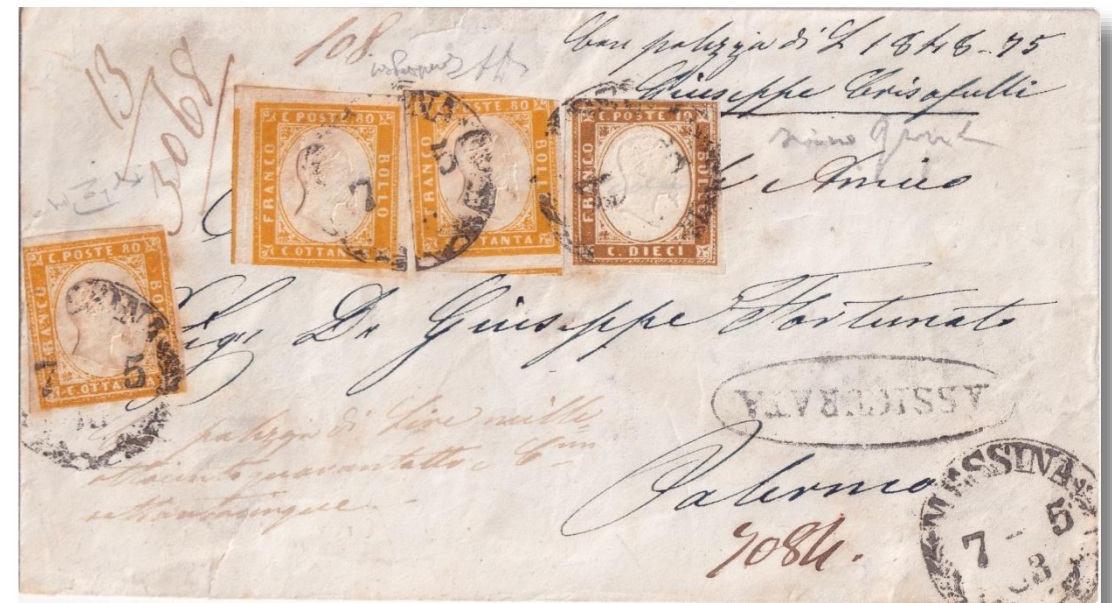 108
13
3068
Con polizza di L 1848-75
Giuseppe Crisafulli
C. POSTE 80
FRANCO
BOLLO
C. OTTANTA
POSTE. 80
FRANCO
BOLLO
TTANTA
C. POSTE 10
FRANCO
BOLLO
C. DIECI
Amico
C. POSTE 80
FRANCO
BOLLO
C. OTTA
7 5
Sigr Dn Giuseppe Fortunato
ASSICURATA
polizza di Lire mille
ottocento quarantotto e Cen
settantacinque.
Palermo
7084.
MESSINA
7 - 5
63